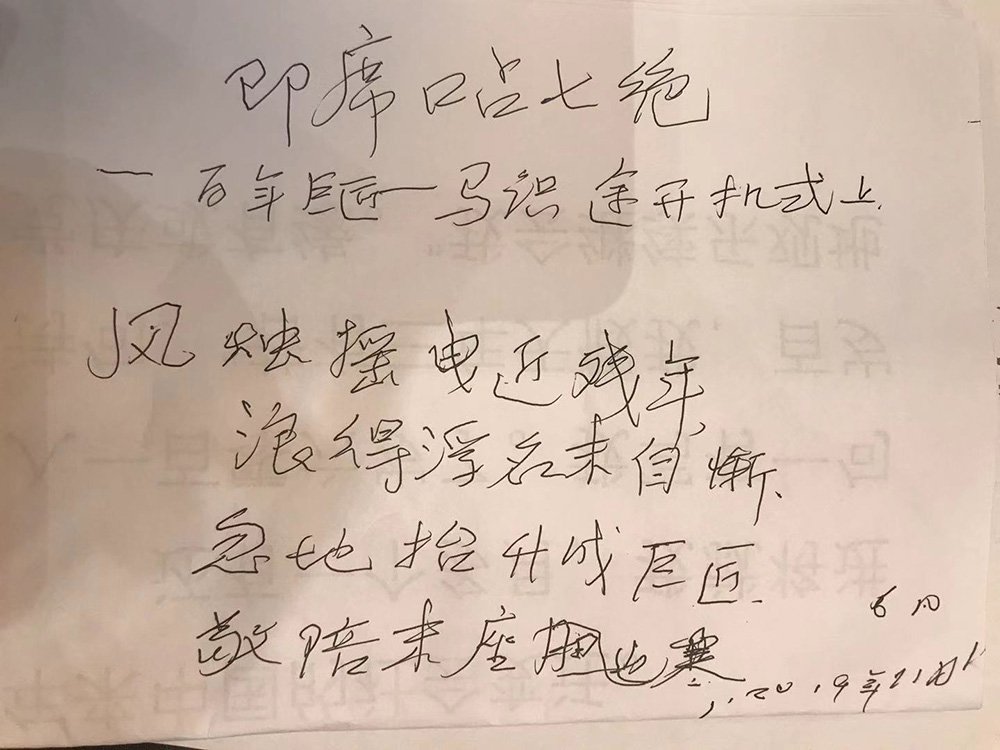 即席口占七绝
—百年巨匠—马识途开机式上.
风烛摇曳近残年,
浪得浮名未自惭、
忽地抬升成巨匠.
敬陪末座胆也寒
2019年11月